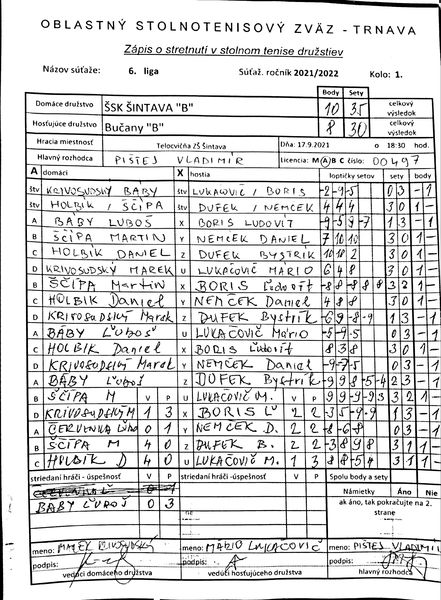 OBLASTNÝ STOLNOTENISOVÝ ZVÄZ - TRNAVA
Zápis o stretnutí v stolnom tenise družstiev
Názov súťaže: 6. liga Súťaž. ročník 2021/2022 Kolo: 1.
Body Sety
Domáce družstvo ŠSK ŠINTAVA "B" 10 35 celkový výsledok
Hosťujúce družstvo Bučany "B" 8 30 celkový výsledok
Hracia miestnosť Telocvičňa ZŠ Šintava Dňa: 17.9.2021 o 18:30 hod.
Hlavný rozhodca PIŠTEJ VLADIMÍR Licencia: M A B C číslo: 00497
A domáci X hostia loptičky setov sety body
štv KRIVOSUDSKÝ BÁBY štv LUKAČOVIČ / BORIS -2 -9 -5 0 3 -1
štv HOLBÍK / ŠČÍPA štv DUFEK / NEMČEK 4 4 4 3 0 1-
A BÁBY ĽUBOŠ X BORIS ĽUDOVÍT -9 -5 9 -7 1 3 -1
B ŠČÍPA MARTIN Y NEMČEK DANIEL 7 10 10 3 0 1-
C HOLBÍK DANIEL Z DUFEK BYSTRÍK 10 10 2 3 0 1-
D KRIVOSUDSKÝ MAREK U LUKAČOVIČ MÁRIO 6 4 8 3 0 1-
B ŠČÍPA Martin X BORIS Ľudovít 8 -8 -8 8 8 3 2 1-
C HOLBÍK Daniel Y NEMČEK Daniel 4 8 8 3 0 1-
D KRIVOSUDSKÝ Marek Z DUFEK Bystrík -6 9 -8 -9 1 3 -1
A BÁBY ĽUBOŠ U LUKAČOVIČ Mário -5 -9 -5 0 3 -1
C HOLBÍK Daniel X BORIS Ľudovít 8 3 8 3 0 1-
D KRIVOSUDSKÝ Marek Y NEMČEK Daniel -9 -7 -5 0 3 -1
A BÁBY ĽUBOŠ Z DUFEK Bystrík -9 9 8 -5 -4 2 3 -1
B ŠČÍPA M V P U LUKAČOVIČ M. V P 9 9 -9 -9 3 3 2 1-
D KRIVOSUDSKÝ M 1 3 X BORIS Ľ 2 2 -3 5 -9 -9 1 3 -1
A ČERVENKA 0 1 Y NEMČEK D. 2 2 -8 -6 -8 0 3 -1
B ŠČÍPA M 4 0 Z DUFEK B. 2 2 -3 8 9 8 3 1 1-
C HOLBÍK D 4 0 U LUKAČOVIČ M. 1 3 8 8 -5 4 3 1 1-
striedaní hráči - úspešnosť V P striedaní hráči - úspešnosť V P Spolu body a sety
0 1 Námietky Áno Nie
BÁBY ĽUBOŠ 0 3 ak áno, tak pokračujte na 2. strane
meno: MAREK KRIVOSUDSKÝ meno: MÁRIO LUKAČOVIČ meno: PIŠTEJ VLADIMÍR
podpis podpis podpis
vedúci domáceho družstva vedúci hosťujúceho družstva hlavný rozhodca